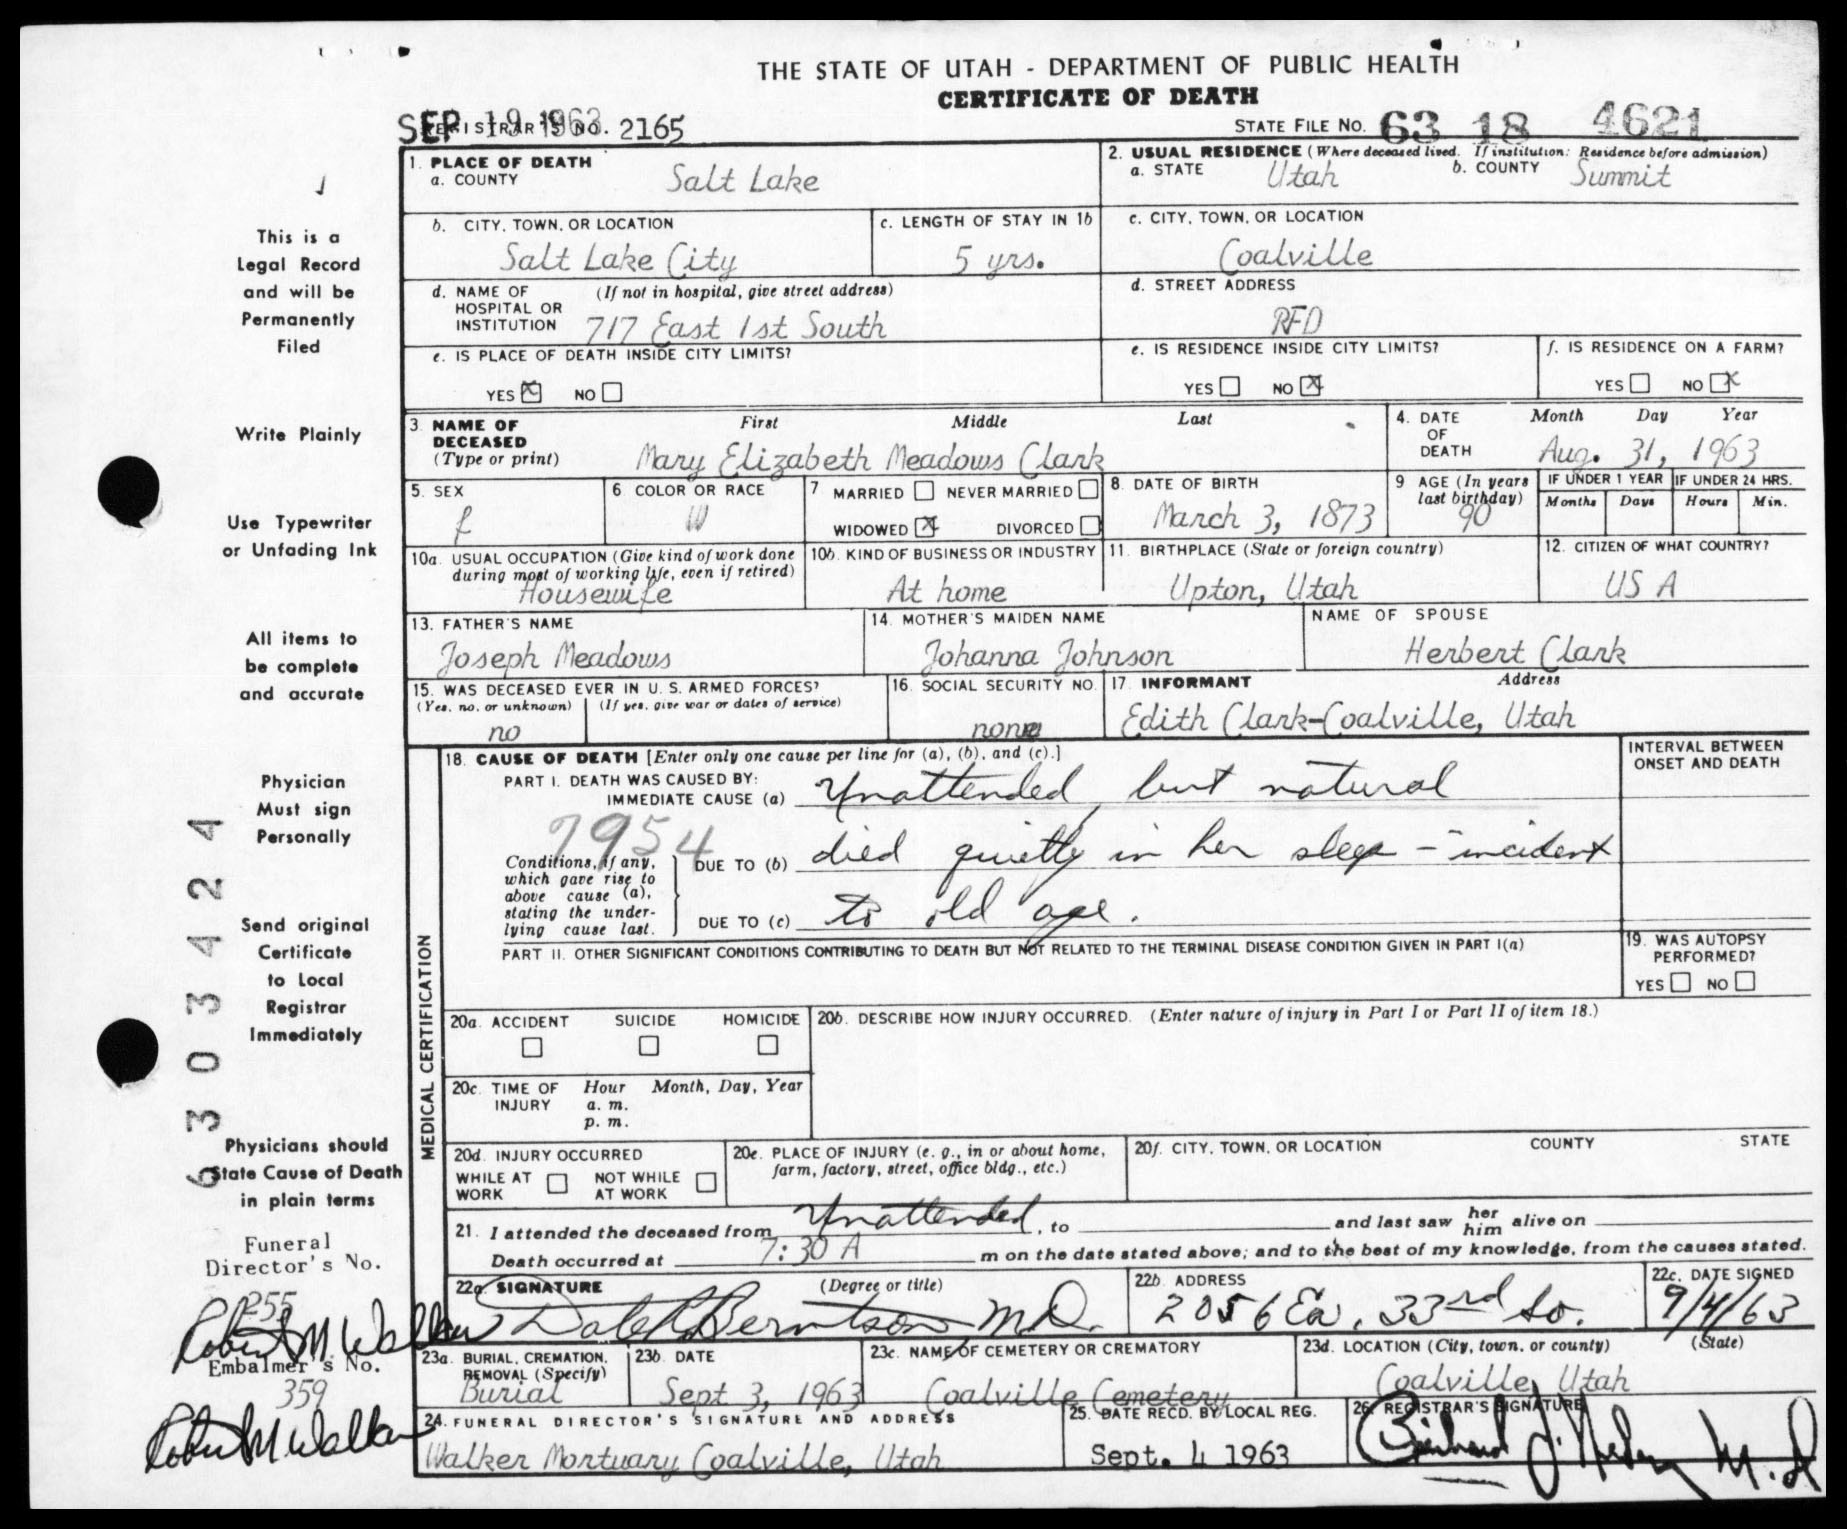 THE STATE OF UTAH - DEPARTMENT OF PUBLIC HEALTH
CERTIFICATE OF DEATH
SEP 19 1963
REGISTRAR'S NO. 2165
STATE FILE NO. 63 18 4621
1. PLACE OF DEATH
a. COUNTY Salt Lake
2. USUAL RESIDENCE (Where deceased lived. If institution: Residence before admission)
a. STATE Utah b. COUNTY Summit
b. CITY, TOWN, OR LOCATION Salt Lake City
c. LENGTH OF STAY IN 1b 5 yrs.
c. CITY, TOWN, OR LOCATION Coalville
d. NAME OF HOSPITAL OR INSTITUTION (If not in hospital, give street address) 717 East 1st South
d. STREET ADDRESS RFD
e. IS PLACE OF DEATH INSIDE CITY LIMITS?
YES ☒ NO ☐
e. IS RESIDENCE INSIDE CITY LIMITS?
YES ☐ NO ☒
f. IS RESIDENCE ON A FARM?
YES ☐ NO ☒
3. NAME OF DECEASED (Type or print) First Middle Last
Mary Elizabeth Meadows Clark
4. DATE OF DEATH Month Day Year
Aug. 31, 1963
5. SEX f
6 COLOR OR RACE W
7 MARRIED ☐ NEVER MARRIED ☐
WIDOWED ☒ DIVORCED ☐
8. DATE OF BIRTH March 3, 1873
9 AGE (In years last birthday) 90
IF UNDER 1 YEAR Months Days
IF UNDER 24 HRS. Hours Min.
10a. USUAL OCCUPATION (Give kind of work done during most of working life, even if retired)
Housewife
10b. KIND OF BUSINESS OR INDUSTRY At home
11. BIRTHPLACE (State or foreign country) Upton, Utah
12. CITIZEN OF WHAT COUNTRY? US A
13. FATHER'S NAME Joseph Meadows
14. MOTHER'S MAIDEN NAME Johanna Johnson
NAME OF SPOUSE Herbert Clark
15. WAS DECEASED EVER IN U. S. ARMED FORCES?
(Yes, no, or unknown) (If yes, give war or dates of service)
no
16. SOCIAL SECURITY NO. none
17. INFORMANT Address
Edith Clark-Coalville, Utah
MEDICAL CERTIFICATION
18. CAUSE OF DEATH [Enter only one cause per line for (a), (b), and (c).]
INTERVAL BETWEEN ONSET AND DEATH
PART I. DEATH WAS CAUSED BY:
IMMEDIATE CAUSE (a) Unattended, but natural
7954
Conditions, if any, which gave rise to above cause (a), stating the underlying cause last.
DUE TO (b) died quietly in her sleep - incident
DUE TO (c) to old age.
PART II. OTHER SIGNIFICANT CONDITIONS CONTRIBUTING TO DEATH BUT NOT RELATED TO THE TERMINAL DISEASE CONDITION GIVEN IN PART I(a)
19. WAS AUTOPSY PERFORMED?
YES ☐ NO ☐
20a. ACCIDENT SUICIDE HOMICIDE
20b. DESCRIBE HOW INJURY OCCURRED. (Enter nature of injury in Part I or Part II of item 18.)
20c. TIME OF INJURY Hour Month, Day, Year
a. m.
p. m.
20d. INJURY OCCURRED
WHILE AT WORK ☐ NOT WHILE AT WORK ☐
20e. PLACE OF INJURY (e. g., in or about home, farm, factory, street, office bldg., etc.)
20f. CITY, TOWN, OR LOCATION COUNTY STATE
21. I attended the deceased from Unattended, to and last saw her him alive on
Death occurred at 7:30 A m on the date stated above; and to the best of my knowledge, from the causes stated.
22a. SIGNATURE (Degree or title)
Dale R Berntson M.D.
22b. ADDRESS 2056 Ea. 33rd So.
22c. DATE SIGNED 9/4/63
23a. BURIAL, CREMATION, REMOVAL (Specify) Burial
23b. DATE Sept 3, 1963
23c. NAME OF CEMETERY OR CREMATORY Coalville Cemetery
23d. LOCATION (City, town, or county) (State)
Coalville, Utah
24. FUNERAL DIRECTOR'S SIGNATURE AND ADDRESS
Walker Mortuary Coalville, Utah
25. DATE RECD. BY LOCAL REG. Sept. 4 1963
26. REGISTRAR'S SIGNATURE
M.D
This is a
Legal Record
and will be
Permanently
Filed
Write Plainly
Use Typewriter
or Unfading Ink
All items to
be complete
and accurate
Physician
Must sign
Personally
Send original
Certificate
to Local
Registrar
Immediately
Physicians should
State Cause of Death
in plain terms
6303424
Funeral
Director's No.
255
Robert M. Walker
Embalmer's No.
359
Robert M Walker